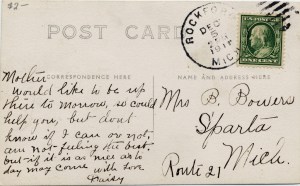 $2-
POST CARD
ROCKFORD
DEC
5
MICH.
CORRESPONDENCE HERE
NAME AND ADDRESS HERE
Mother
Would like to be up
there to morrow, so could
help you, but dont
know if I can or not,
am not feeling the best
but if it is as nice as to
day may come with love
Daisy
Mrs B. Bowers
Sparta
Mich.
Route 21